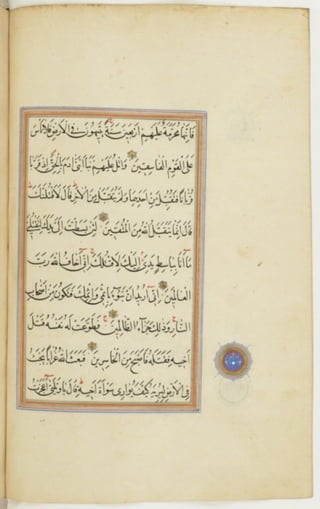 فَإِنَّهَا مُحَرَّمَةٌ عَلَيْهِمْ أَرْبَعِينَ سَنَةً يَتِيهُونَ فِي الْأَرْضِ فَلَا تَأْسَ
عَلَى الْقَوْمِ الْفَاسِقِينَ وَاتْلُ عَلَيْهِمْ نَبَأَ ابْنَيْ آدَمَ بِالْحَقِّ إِذْ قَرَّبَا
قُرْبَانًا فَتُقُبِّلَ مِنْ أَحَدِهِمَا وَلَمْ يُتَقَبَّلْ مِنَ الْآخَرِ قَالَ لَأَقْتُلَنَّكَ
قَالَ إِنَّمَا يَتَقَبَّلُ اللَّهُ مِنَ الْمُتَّقِينَ لَئِنْ بَسَطْتَ إِلَيَّ يَدَكَ لِتَقْتُلَنِي
مَا أَنَا بِبَاسِطٍ يَدِيَ إِلَيْكَ لِأَقْتُلَكَ إِنِّي أَخَافُ اللَّهَ رَبَّ
الْعَالَمِينَ إِنِّي أُرِيدُ أَنْ تَبُوءَ بِإِثْمِي وَإِثْمِكَ فَتَكُونَ مِنْ أَصْحَابِ
النَّارِ وَذَلِكَ جَزَاءُ الظَّالِمِينَ فَطَوَّعَتْ لَهُ نَفْسُهُ قَتْلَ
أَخِيهِ فَقَتَلَهُ فَأَصْبَحَ مِنَ الْخَاسِرِينَ فَبَعَثَ اللَّهُ غُرَابًا يَبْحَثُ
فِي الْأَرْضِ لِيُرِيَهُ كَيْفَ يُوَارِي سَوْأَةَ أَخِيهِ قَالَ يَا وَيْلَتَى أَعَجَزْتُ